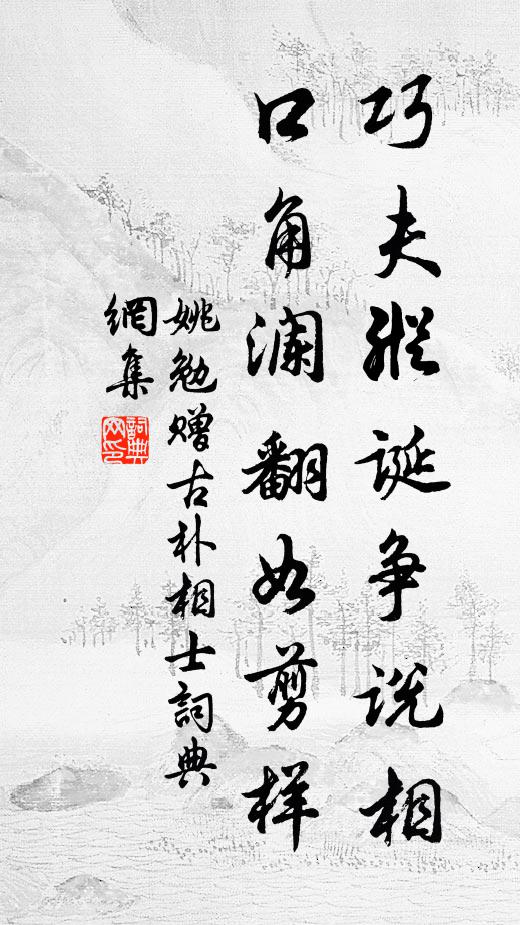 巧夫纵诞争说相
口角澜翻如剪样
姚勉赠古朴相士詞典
網集
詞典网印